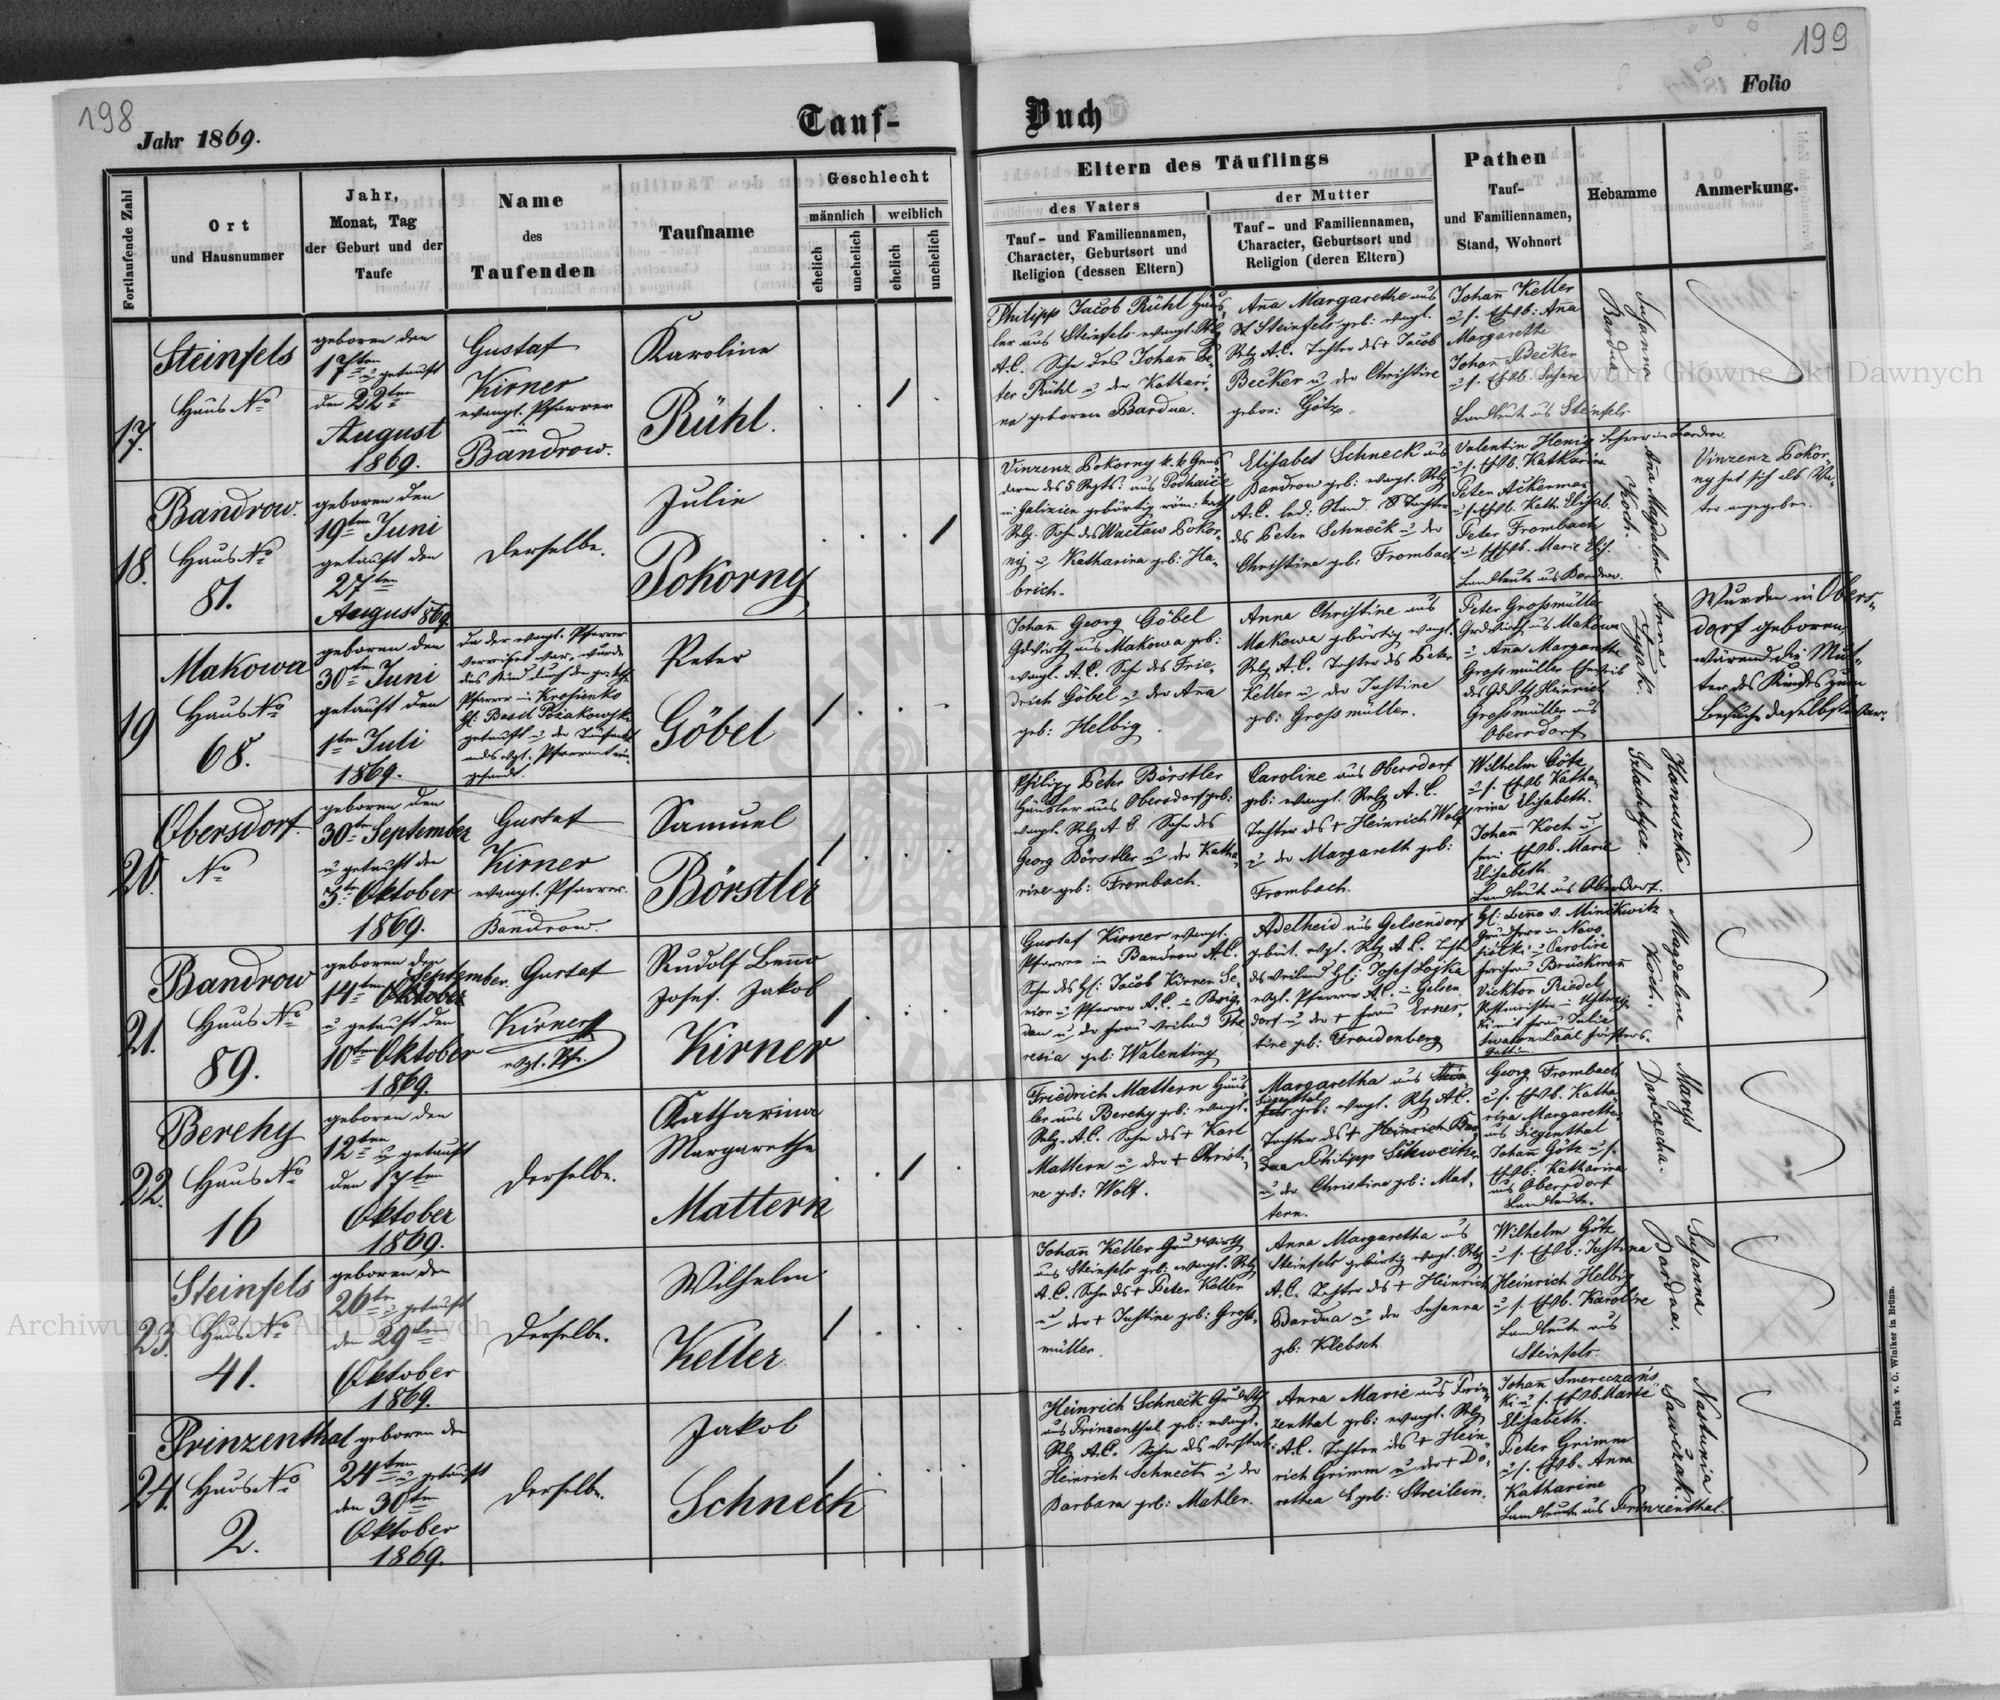 198
199
Jahr 1869.
Tauf-
Buch
Folio
Fortlaufende Zahl
Ort
und Hausnummer
Jahr,
Monat, Tag
der Geburt und der
Taufe
Name
des
Taufenden
Taufname
Geschlecht
männlich
weiblich
ehelich
unehelich
ehelich
unehelich
Eltern des Täuflings
des Vaters
Tauf- und Familiennamen,
Character, Geburtsort und
Religion (dessen Eltern)
der Mutter
Tauf- und Familiennamen,
Character, Geburtsort und
Religion (deren Eltern)
Pathen
Tauf-
und Familiennamen,
Stand, Wohnort
Hebamme
Anmerkung.
17.
Steinfels
Haus No
geboren den
17ten u getauft
den 22ten
August
1869.
Gustaf
Kirner
evangl. Pfarrer
in
Bandrow.
Karoline
Rühl.
Philipp Jacob Rühl Häus-
ler aus Steinfels evangl. Relg
A.C. Sohn des Johann Pe-
ter Rühl u der Kathari-
na geborene Bardua.
Ana Margarethe aus
Steinfels geb: evangl.
Relg A.C. Tochter des + Jacob
Becker u der Christine
gebor: Götz.
Johann Keller
u s. Ehwb: Ana
Margarethe
Johann Becker
u s. Ehwb. Susane
Landleute aus Steinfels
Susanna
Bardua
18.
Bandrow.
Haus No
81.
geboren den
19ten Juni
getauft den
27ten
August 869.
Derselbe.
Julie
Pokorny
Vinzenz Pokorny k. k Gens
darm des 5 Rgts: aus Podhaiče
in Galizien gebürtig röm: kath
Relg. Sohn des Wacław Pokor-
ny u Katharina geb: Ha-
brich.
Elisabet Schneck aus
Bandrow geb: evngl. Relg
A.C. led: Stand. Tochter
des Peter Schneck u der
Christine geb: Frombach
Valentin Henig Lehrer in Bandrow.
u s. Ehwb. Katharine
Peter Ackerman
u s. Ehwb. Kath. Elisab.
Peter Frombach
u s. Ehwb. Marie Elis.
Landleute aus Bandrow.
Ana Magdalene
Koch.
Vinzenz Pokor-
ny hat sich als Va-
ter angegeben.
19
Makowa
Haus No
68.
geboren den
30ten Juni
getauft den
1ten Juli
1869.
Da der evangl. Pfarrer
verreist war, wurde
das Kind durch den gr. kth.
Pfarrer in Krosienko
H: Basil Pożakowski
getauft u der Taufakt
ans evgl. Pfarramt ein-
gesandt.
Peter
Göbel
Johan Georg Göbel
Gdwirth aus Makowa geb:
evangl. A.C. Sohn des Frie-
drich Göbel u der Ana
geb: Helbig.
Anna Christine aus
Makowa gebürtig evangl.
Relg A.C. Tochter des Peter
Keller u der Justine
geb: Grossmüller.
Peter Großmüller
Grdwirth aus Makowa
u Ana Margarethe
Großmüller Eheweib
des Gdwth Heinrich
Großmüller aus
Obersdorf
Anna
Łysak.
Wurden in Obers-
dorf geboren,
wärend die Mut-
ter des Kindes zum
Besuche daselbst war.
20.
Obersdorf.
No
geboren den
30ten September
u getauft den
3ten Oktober
1869.
Gustaf
Kirner
evangl. Pfarrer.
in
Bandrow.
Samuel
Börstler
Philipp Peter Börstler
Häusler aus Obersdorf geb:
evangl. Relg A C. Sohn des
Georg Börstler u der Katha-
rine geb: Frombach.
Caroline aus Obersdorf
geb: evangl. Relg A.C.
Tochter des + Heinrich Wolf
u der Margareth geb:
Frombach.
Wilhelm Götz
u s. Ehwb Katha-
rina Elisabeth.
Johann Koch u
sein Ehwb. Marie
Elisabeth.
Landleute aus Obersdorf.
Hanuszka
21.
Bandrow
Haus No
89.
geboren den
14ten September.
Oktober
u getauft den
10ten Oktober
1869.
Gustaf
Kirner
evgl. Pf.
Rudolf Benno
Josef. Jakob
Kirner
Gustaf Kirner evangl.
Pfarrer in Bandrow A.C.
Sohn des H: Jacob Kirner Se-
nior u Pfarrer A.C. in Brig-
dau u der Frau weiland The-
resia geb: Walenting
Adelheid aus Gelsendorf
gebürt. evgl. Relg A.C. Tocht.
des weiland H: Josef Lojka
evgl. Pfarrer A.C. in Gelsen
dorf u der + Frau Ernes-
tine geb: Freudenberg
H: Beno v. Minikwitz
Grundherr in Nowo-
sielki u Caroline
Freifrau Brückmann
Vicktor Riedel
Postmeister in Ustrzy-
ki mit Frau Julie
Gattin
Magdalene
Koch.
22.
Berehy
Haus No
16
geboren den
12ten u getauft
den 17ten
Oktober
1869.
Derselbe.
Katharina
Margaretha
Mattern
Friedrich Mattern Häus-
ler aus Berehy geb: evangl.
Relg. A.C. Sohn des + Karl
Mattern u der + Christi-
ne geb: Wolf.
Margaretha aus
Siegenthal
geb: evangl. Relg A.C.
Tochter des + Heinrich Bar
dua Philipp Schweitzer
u der Christine geb: Mat-
tern.
Georg Frombach
u s. Ehwb. Katha-
rina Margarethe
aus Siegenthal
Johann Götz u s.
Ehwb: Katharina
aus Obersdorf
Landleute.
Marys
23.
Steinfels
Haus No
41.
geboren den
26ten u getauft
den 29ten
Oktober
1869.
Derselbe.
Wilhelm
Keller
Johann Keller Grundwirth
aus Steinfels geb: evangl. Relg
A.C. Sohn des + Peter Keller
u der + Justine geb: Gross-
müller.
Anna Margaretha aus
Steinfels gebürtig evngl. Relg
A.C. Tochter des + Heinrich
Bardua u der Susanna
geb: Klebsch.
Wilhelm Götz
u s. Ehwb: Justina
Heinrich Helbig
u s. Ehwb. Karoline
Landleute aus
Steinfels.
Susanna
Bardua.
24.
Prinzenthal
Haus No
2.
geboren den
24ten u getauft
den 30ten
Oktober
1869.
Derselbe.
Jakob
Schneck
Heinrich Schneck Grdwth
aus Prinzenthal geb: evangl.
Relg A.C. Sohn des verstorb:
Heinrich Schneck u der
Barbara geb: Mahler.
Anna Marie aus Prin-
zenthal geb: evangl. Relg
A.C. Tochter des + Hein-
rich Grimm u der + Do-
rothea geb: Streilein.
Johann Smereczańs
ki u s. Ehwb. Marie
Elisabeth.
Peter Grimm
u s. Ehwb. Anna
Katharine
Landleute aus Prinzenthal.
Nastunia
Sawczak.
Druck v. C. Winiker in Brünn.
Archiwum Główne Akt Dawnych
Archiwum Główne Akt Dawnych